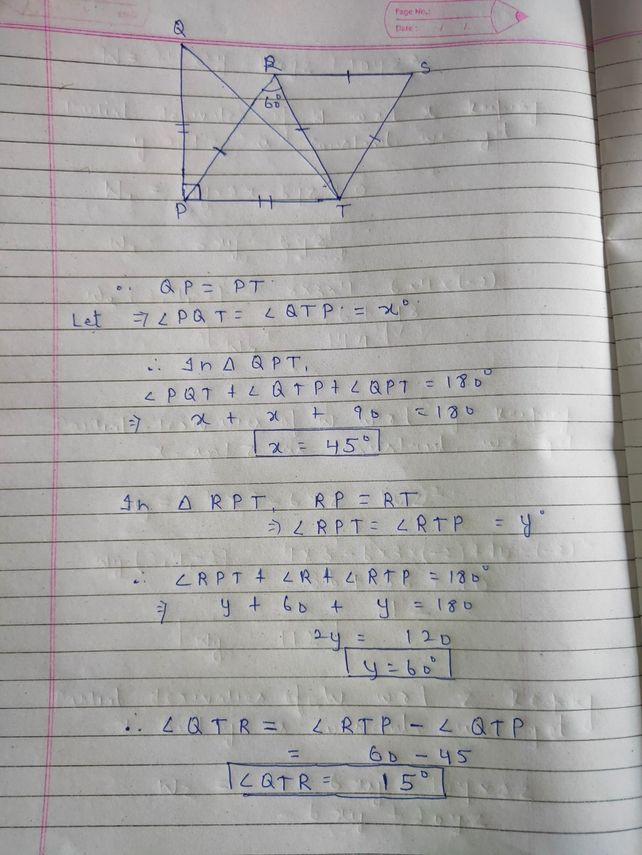 Page No.:
Date: / /
Q
R
S
60°
P
T
∴ QP = PT
Let ⇒ ∠PQT = ∠QTP = x°
∴ In Δ QPT,
∠PQT + ∠QTP + ∠QPT = 180°
⇒ x + x + 90 = 180
x = 45°
In Δ RPT, RP = RT
⇒ ∠RPT = ∠RTP = y°
∴ ∠RPT + ∠R + ∠RTP = 180°
⇒ y + 60 + y = 180
2y = 120
y = 60°
∴ ∠QTR = ∠RTP - ∠QTP
= 60 - 45
∠QTR = 15°